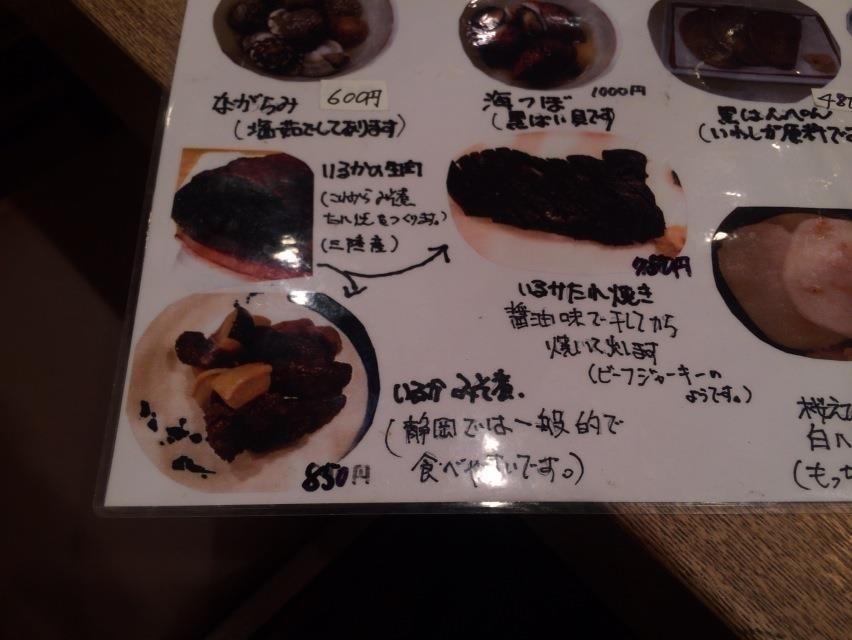 ながらみ 600円
(塩茹でしてあります)
海つぼ 1000円
(黒ばい貝です)
黒はんぺん
(いわしが原料で
いるかの生肉
(これから みそ煮
たれ焼をつくります。)
(三陸産)
780円
いるかたれ焼き
醤油味で干してから
焼いて出します
(ビーフジャーキーの
ようです。)
いるか みそ煮.
(静岡では一般的で
食べやすいです。)
850円
桜え
白ハ
(もっち